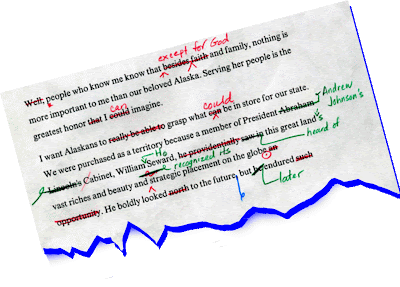 except for God
Well, people who know me know that besides faith and family, nothing is
more important to me than our beloved Alaska. Serving her people is the
can
greatest honor that I could imagine.
could
I want Alaskans to really be able to grasp what can be in store for our state.
Andrew
Johnson's
We were purchased as a territory because a member of President Abraham
Lincoln's Cabinet, William Seward, he providentially saw in this great land's
heard of
recognized its
vast riches and beauty and strategic placement on the globe an
opportunity. He boldly looked north to the future, but he endured such
later